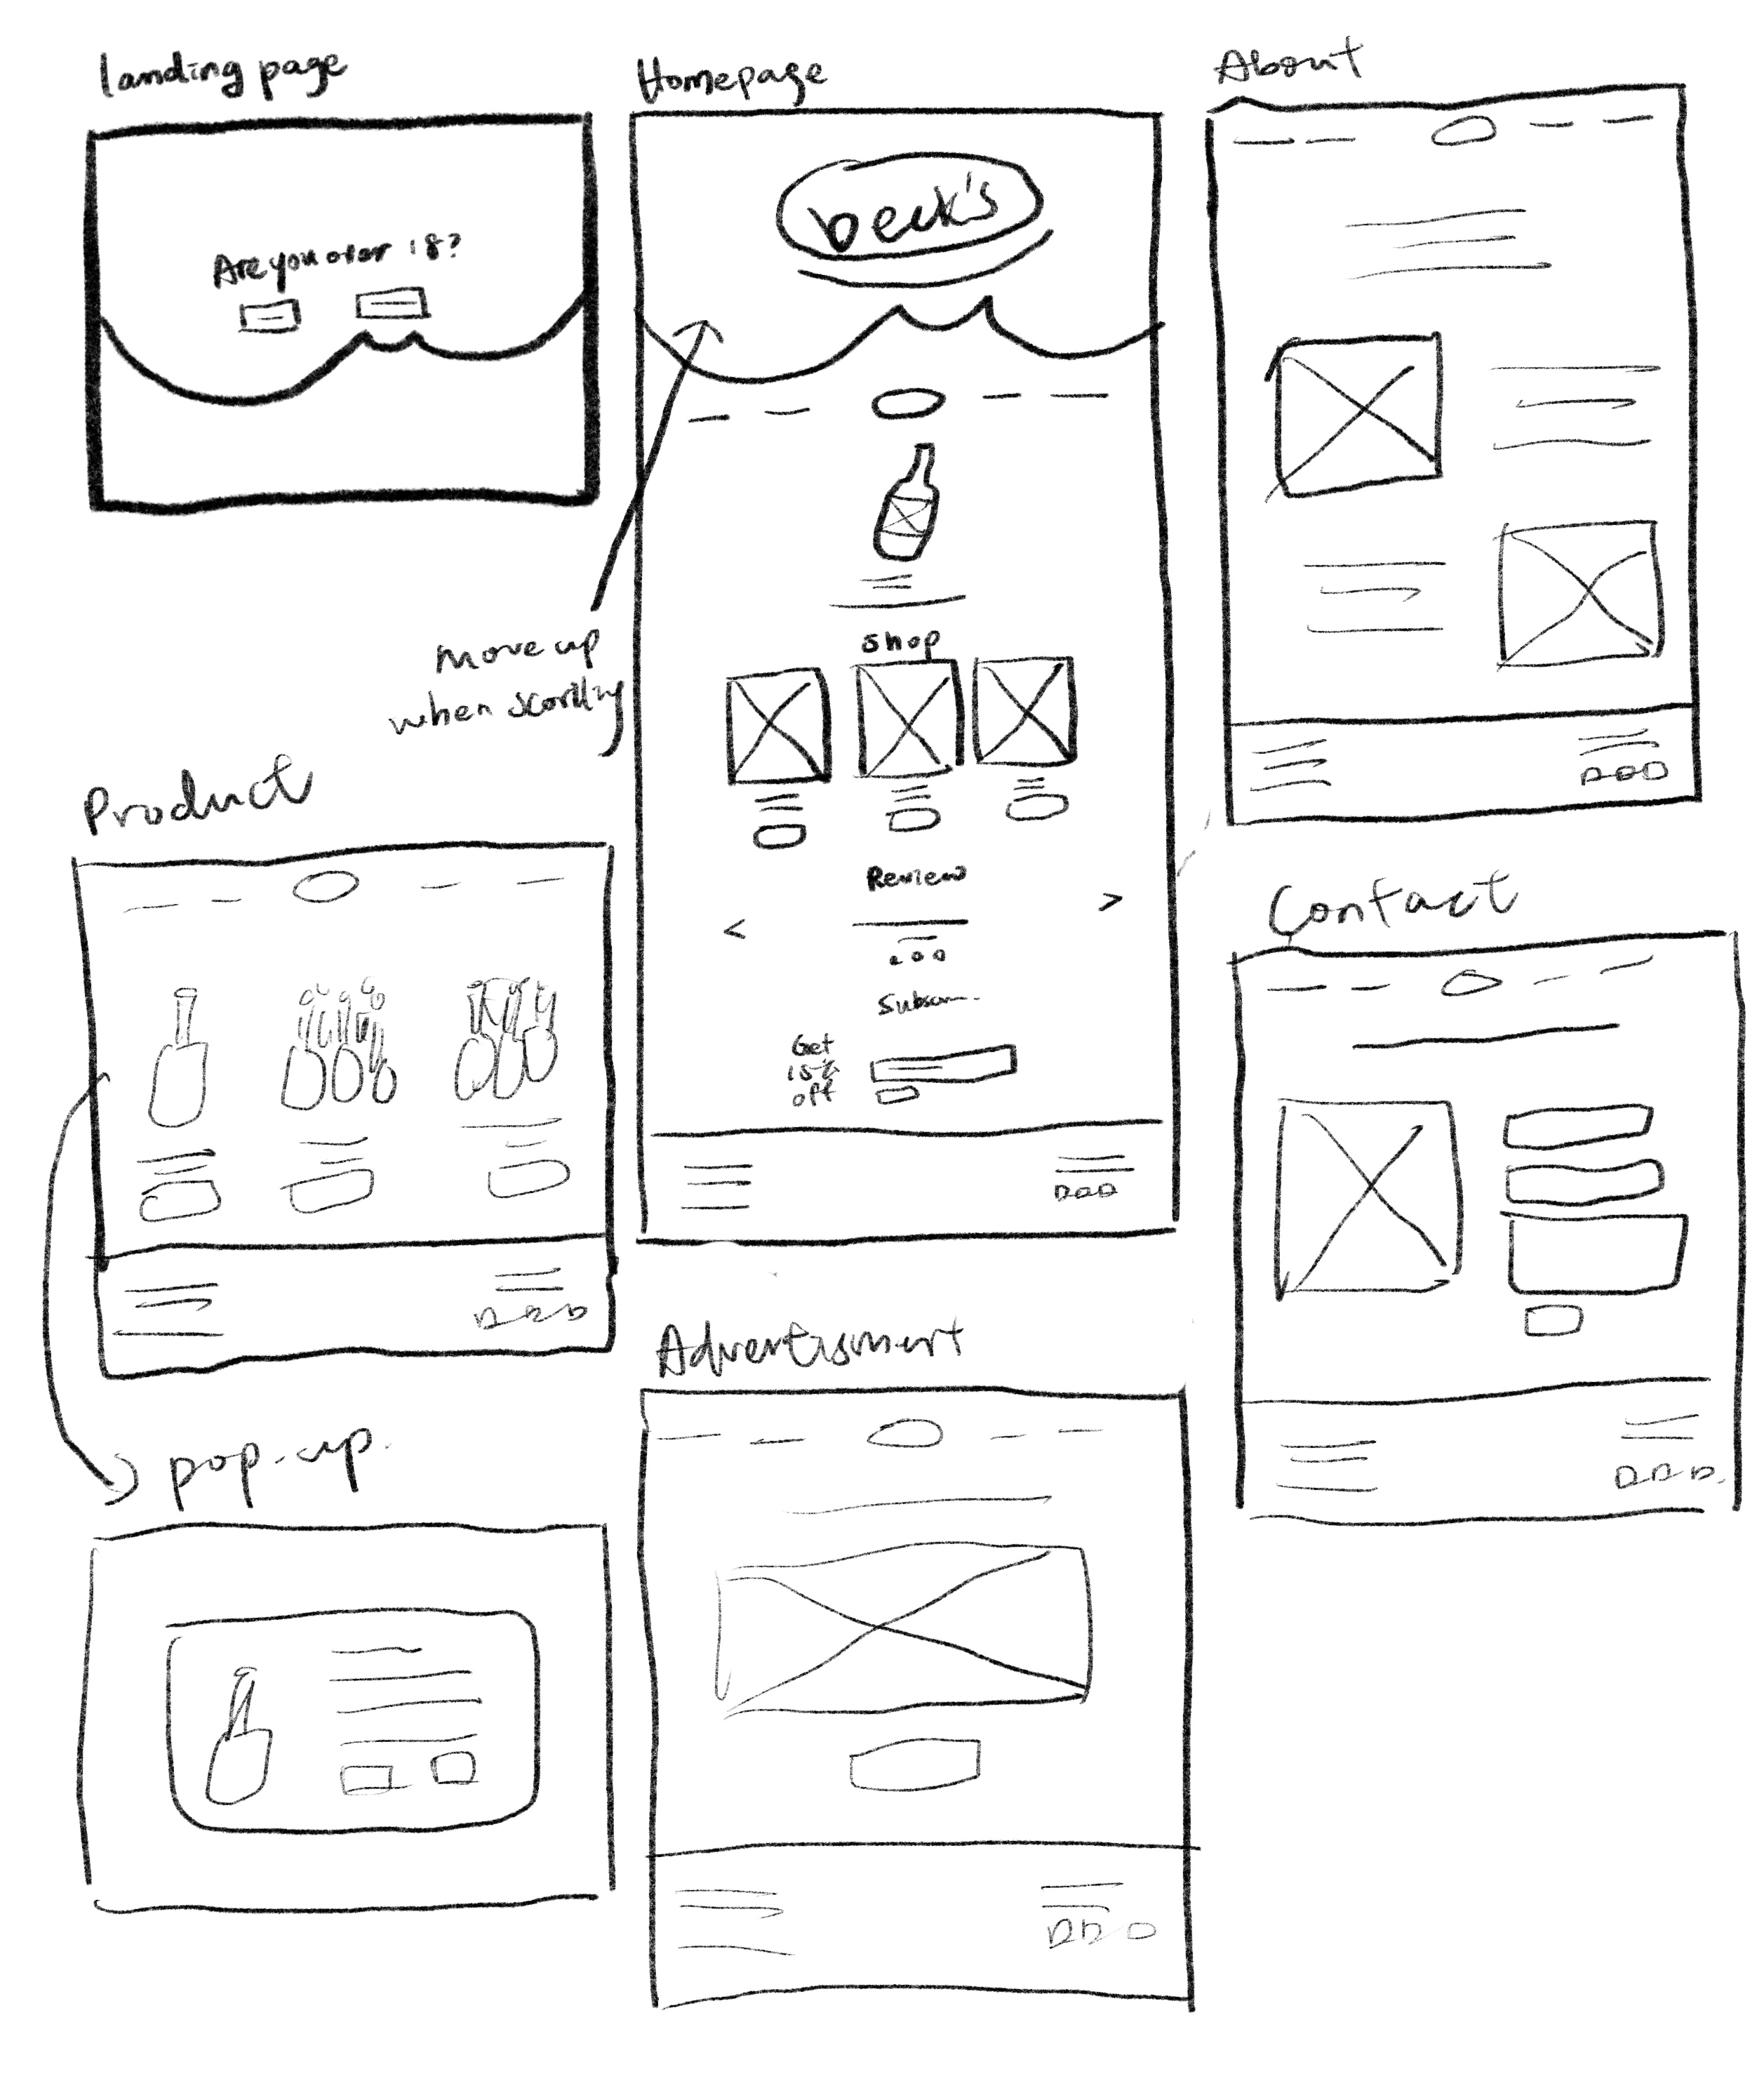 landing page
Are you over 18?
Homepage
beck's
move up
when scorlling
Shop
Review
<
>
Subscr.
Get
15%
off
About
Product
Contact
pop-up.
Advertisment